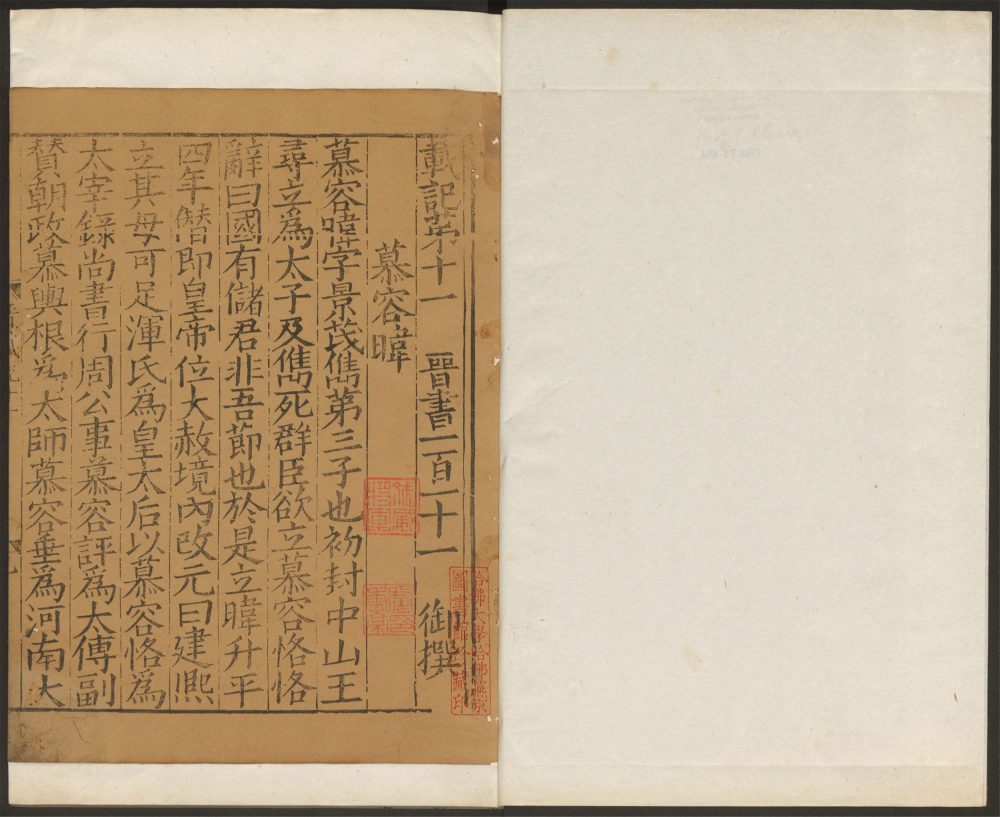 載記第十一 晉書一百一十一 御撰
慕容暐
慕容暐字景茂儁第三子也初封中山王
尋立爲太子及儁死群臣欲立慕容恪恪
辭曰國有儲君非吾節也於是立暐升平
四年僭即皇帝位大赦境內改元曰建熈
立其母可足渾氏爲皇太后以慕容恪爲
太宰錄尚書行周公事慕容評爲太傅副
賛朝政慕輿根爲太師慕容垂爲河南大
哈佛大學哈佛燕京
圖書館珍藏印